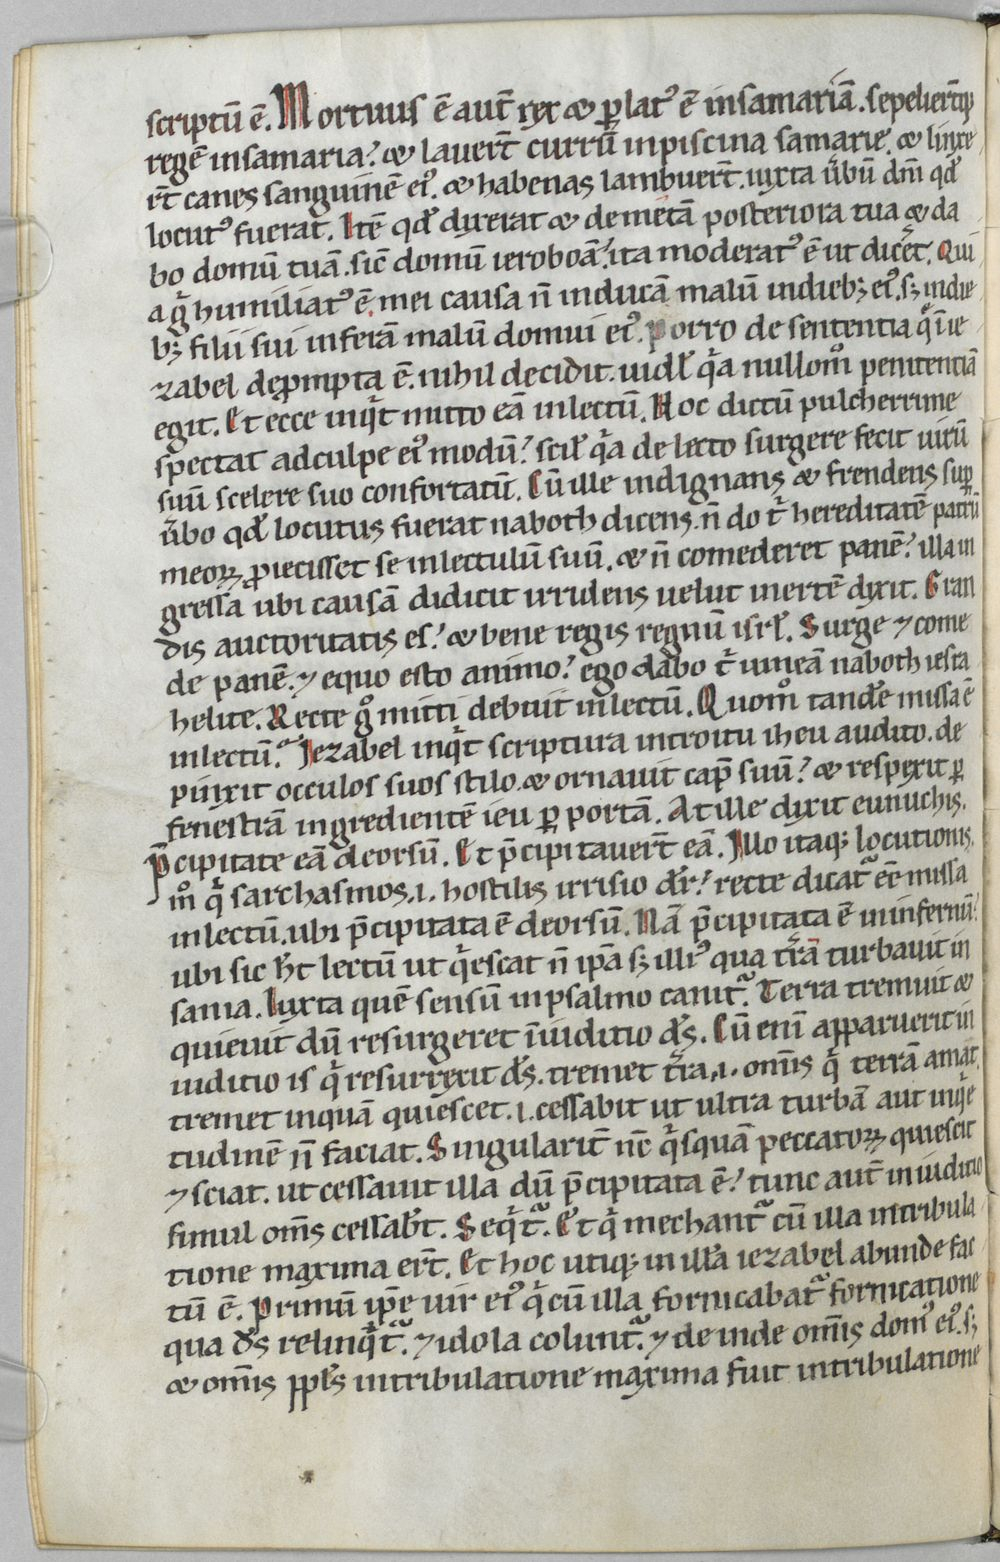 scriptū ē. Mortuus ē aut̄ rex & ꝑlatꝰ ē insamariā. sepelier̄tq;
regē insamaria? & lauer̄t currū inpiscina samarie. & linxe
r̄t canes sanguinē eiꝰ. & habenas lambuer̄t. iuxta ūbū dnī qđ
locutꝰ fuerat. Itē qđ dixerat & demetā posteriora tua & da
bo domū tuā. sic̄ domū ieroboā? ita moderatꝰ ē ut dic̄et. Qui
a g̊ humiliatꝰ ē mei causa n̄ inducā malū indieb; eiꝰ. s; indie
b; filii sui inferā malū domui eiꝰ. Porro de sententia q̄ ī ie
zabel deprompta ē. nihil decidit. uidł q̄a nullom̊ penitentiā
egit. Et ecce inq̄t mitto eā inlectū. Hoc dictū pulcherrime
spectat adculpe eiꝰ modū? scił q̄a de lecto surgere fecit uirū
suū scelere suo confortatū. Cū ille indignans & frendens suꝑ
ūbo qđ locutus fuerat naboth dicens. n̄ do t̄ hereditatē patrū
meoꝝ ꝓiecisset se inlectulū suū. & n̄ comederet panē? illa in
gressa ubi causā didicit irridens uelut inertē dixit. Gran
dis auctoritatis es? & bene regis regnū isrł. Surge ⁊ come
de panē. ⁊ equo esto animo? ego dabo t̄ uineā naboth iesra
helite. Recte g̊ mitti debuit inlectū. Quom̊ tandē missa ē
inlectū? Iezabel inq̄t scriptura introitu iheu audito. de
pinxit occulos suos stilo. & ornauit cap̄ suū? & respexit ꝑ
fenestrā ingredientē ieu ꝑ portā. At ille dixit eunuchis.
p̄cipitate eā deorsū. Et p̄cipitauer̄t eā. Illo itaq; locutionis
m̊ q̄ sarchasmos .i. hostilis irrisio dr̄? recte dicat̄ eē missa
inlectū. ubi p̄cipitata ē deorsū. Nā p̄cipitata ē ininfernū?
ubi sic h̄t lectū ut q̄escat n̄ ipā s; illiꝰ qua t̄rā turbauit in
sania. Iuxta quē sensū inpsalmo canit̄. Terra tremuit &
quieuit dū resurgeret īiuditio dſ. Cū enī apparuerit in
iuditio is q̄ resurrexit dſ. tremet t̄ra .i. omīs q̄ terrā amat.
tremet inquā quiescet .i. cessabit ut ultra turbā aut inq̄e
tudinē n̄ faciat. Singularit̄ nc̄ q̄squā peccatoꝝ quiescit
⁊ sciat. ut cessauit illa dū p̄cipitata ē? tunc aut̄ iniuditio
simul om̄s cessab̄t. Seq̄t̄. Et q̄ mechant̄ cū illa intribula
tione maxima er̄t. Et hoc utiq; in illā iezabel abunde fac
tū ē. Primū ipse uir eiꝰ q̄ cū illa fornicabat̄ fornicatione
qua dſ relinq̄t̄. ⁊ idola colunt̄. ⁊ de inde omīs domꝰ eiꝰ. s;
& omīs ppłs intribulatione maxima fuit intribulatione